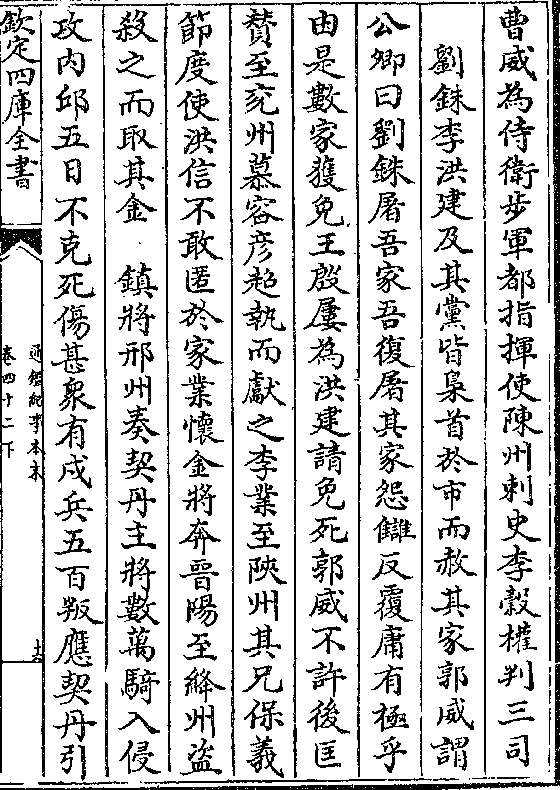 曹威為侍衛步軍都指揮使陳州刺史李糓權判三司
劉銖李洪建及其黨皆梟首於市而赦其家郭威謂
公卿曰劉銖屠吾家吾復屠其家怨讎反覆庸有極乎
由是數家獲免王殷屢為洪建請免死郭威不許後匡
賛至兖州慕容彦超執而獻之李業至陝州其兄保義
節度使洪信不敢匿於家業懷金將奔晉陽至絳州盗
殺之而取其金 鎮將邢州奏契丹主將數萬騎入侵
攻内邱五日不克死傷甚衆有戍兵五百叛應契丹引
欽定四庫全書
通鑑紀事本末
卷四十二下